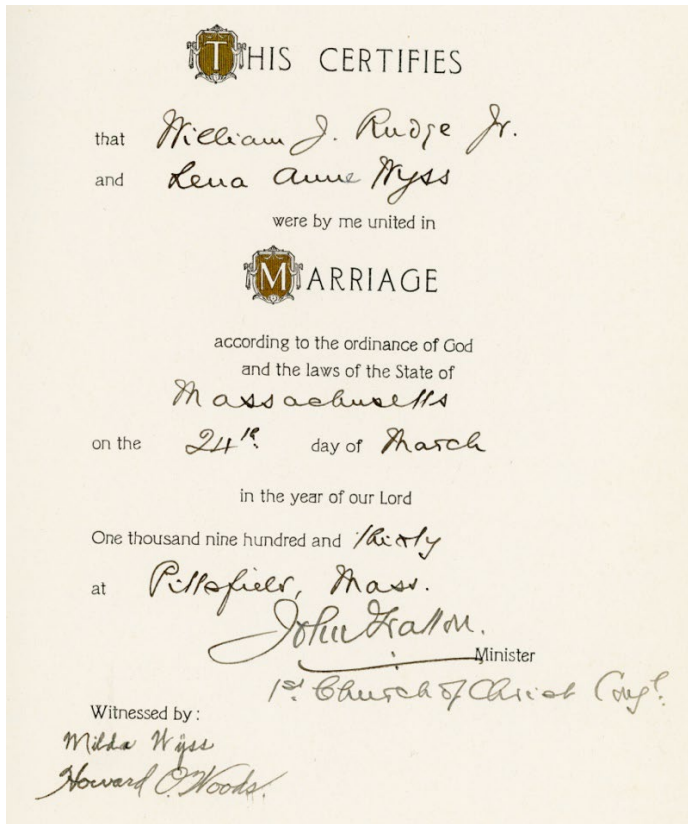 THIS CERTIFIES
that William J. Rudge Jr.
and Lena Anne Wyss
were by me united in
MARRIAGE
according to the ordinance of God
and the laws of the State of
Massachusetts
on the 24th day of March
in the year of our Lord
One thousand nine hundred and thirty
at Pittsfield, Mass.
John Gratton.
Minister
1st Church of Christ Cong'l.
Witnessed by:
Milda Wyss
Howard O. Woods.